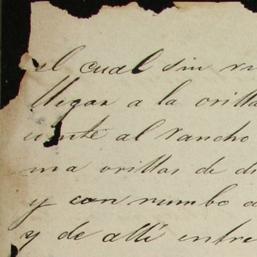 el cual sin
llegar a la orilla
al rancho
orillas de
y con rumbo
y de alli entre